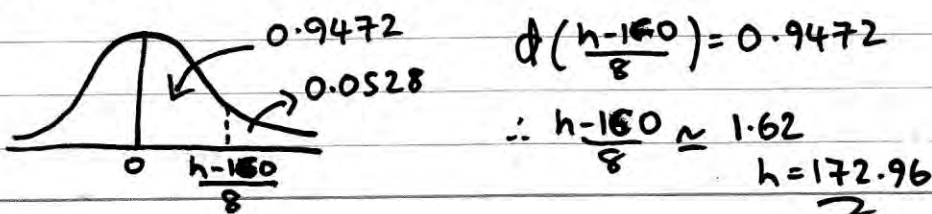 0.9472
0.0528
0
h-160
8
ϕ(h-160/8) = 0.9472
∴ h-160/8 ≃ 1.62
h = 172.96